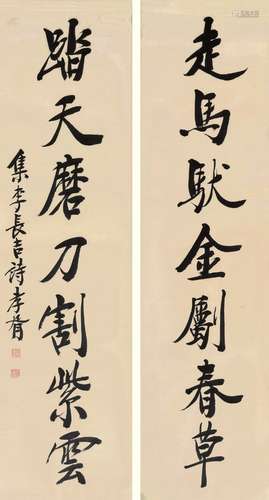 走馬馱金劚春草
踏天磨刀割紫雲
集李長吉詩孝胥